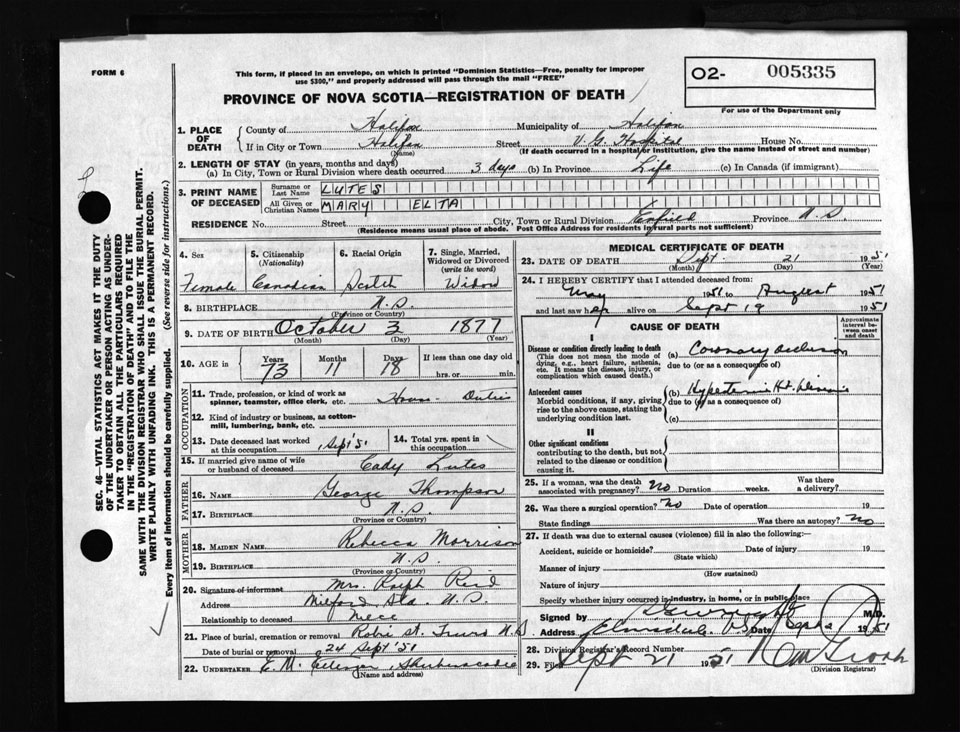 FORM 6
This form, if placed in an envelope, on which is printed "Dominion Statistics—Free, penalty for improper
use $300," and properly addressed will pass through the mail "FREE"
02- 005335
For use of the Department only
PROVINCE OF NOVA SCOTIA—REGISTRATION OF DEATH
1. PLACE OF DEATH
County of Halifax Municipality of Halifax
If in City or Town Halifax Street V. G. Hospital House No.
(Name) (If death occurred in a hospital or institution, give the name instead of street and number)
2. LENGTH OF STAY (in years, months and days)
(a) In City, Town or Rural Division where death occurred 3 days (b) In Province Life (c) In Canada (if immigrant)
3. PRINT NAME OF DECEASED
Surname or Last Name LUTES
All Given or Christian Names MARY ELTA
RESIDENCE No. Street City, Town or Rural Division Enfield Province N.S.
(Residence means usual place of abode. Post Office Address for residents in rural parts not sufficient)
4. Sex 5. Citizenship (Nationality) 6. Racial Origin 7. Single, Married, Widowed or Divorced (write the word)
Female Canadian Scotch Widow
8. BIRTHPLACE N.S.
(Province or Country)
9. DATE OF BIRTH October 3 1877
(Month) (Day) (Year)
10. AGE in Years 73 Months 11 Days 18 If less than one day old hrs. or min.
OCCUPATION
11. Trade, profession, or kind of work as spinner, teamster, office clerk, etc. House Duties
12. Kind of industry or business, as cotton-mill, lumbering, bank, etc.
13. Date deceased last worked at this occupation Sept '51 14. Total yrs. spent in this occupation
15. If married give name of wife or husband of deceased Cady Lutes
FATHER
16. NAME George Thompson
17. BIRTHPLACE N.S.
(Province or Country)
MOTHER
18. MAIDEN NAME Rebecca Morrison
19. BIRTHPLACE N.S.
(Province or Country)
20. Signature of informant Mrs. Ralph Reid
Address Milford Sta. N.S.
Relationship to deceased Niece
21. Place of burial, cremation or removal Robie St. Truro N.S.
Date of burial or removal 24 Sept '51
22. UNDERTAKER E. M. Shubenacadie
(Name and address)
MEDICAL CERTIFICATE OF DEATH
23. DATE OF DEATH Sept 21 1951
(Month) (Day) (Year)
24. I HEREBY CERTIFY that I attended deceased from:
May 1951 to August 1951
and last saw her alive on Sept 19 1951
CAUSE OF DEATH
Approximate interval between onset and death
I
Disease or condition directly leading to death
(This does not mean the mode of dying, e.g., heart failure, asthenia, etc. It means the disease, injury, or complication which caused death.)
(a) Coronary occlusion
due to (or as a consequence of)
Antecedent causes
Morbid conditions, if any, giving rise to the above cause, stating the underlying condition last.
(b) Hypertensive Ht. Disease
due to (or as a consequence of)
(c)
II
Other significant conditions
contributing to the death, but not related to the disease or condition causing it.
25. If a woman, was the death associated with pregnancy? No Duration weeks. Was there a delivery?
26. Was there a surgical operation? No Date of operation 19
State findings Was there an autopsy? No
27. If death was due to external causes (violence) fill in also the following:
Accident, suicide or homicide? Date of injury 19
(State which)
Manner of injury
(How sustained)
Nature of injury
Specify whether injury occurred in industry, in home, or in public place
Signed by M.D.
Address N.S. Date Sept 1951
28. Division Registrar's Record Number
29. Filed Sept 21 1951
(Division Registrar)
SEC. 46—VITAL STATISTICS ACT MAKES IT THE DUTY
OF THE UNDERTAKER OR PERSON ACTING AS UNDER-
TAKER TO OBTAIN ALL THE PARTICULARS REQUIRED
IN THE "REGISTRATION OF DEATH" AND TO FILE THE
SAME WITH THE DIVISION REGISTRAR WHO SHALL ISSUE THE BURIAL PERMIT.
WRITE PLAINLY WITH UNFADING INK. THIS IS A PERMANENT RECORD.
Every item of information should be carefully supplied. (See reverse side for instructions.)